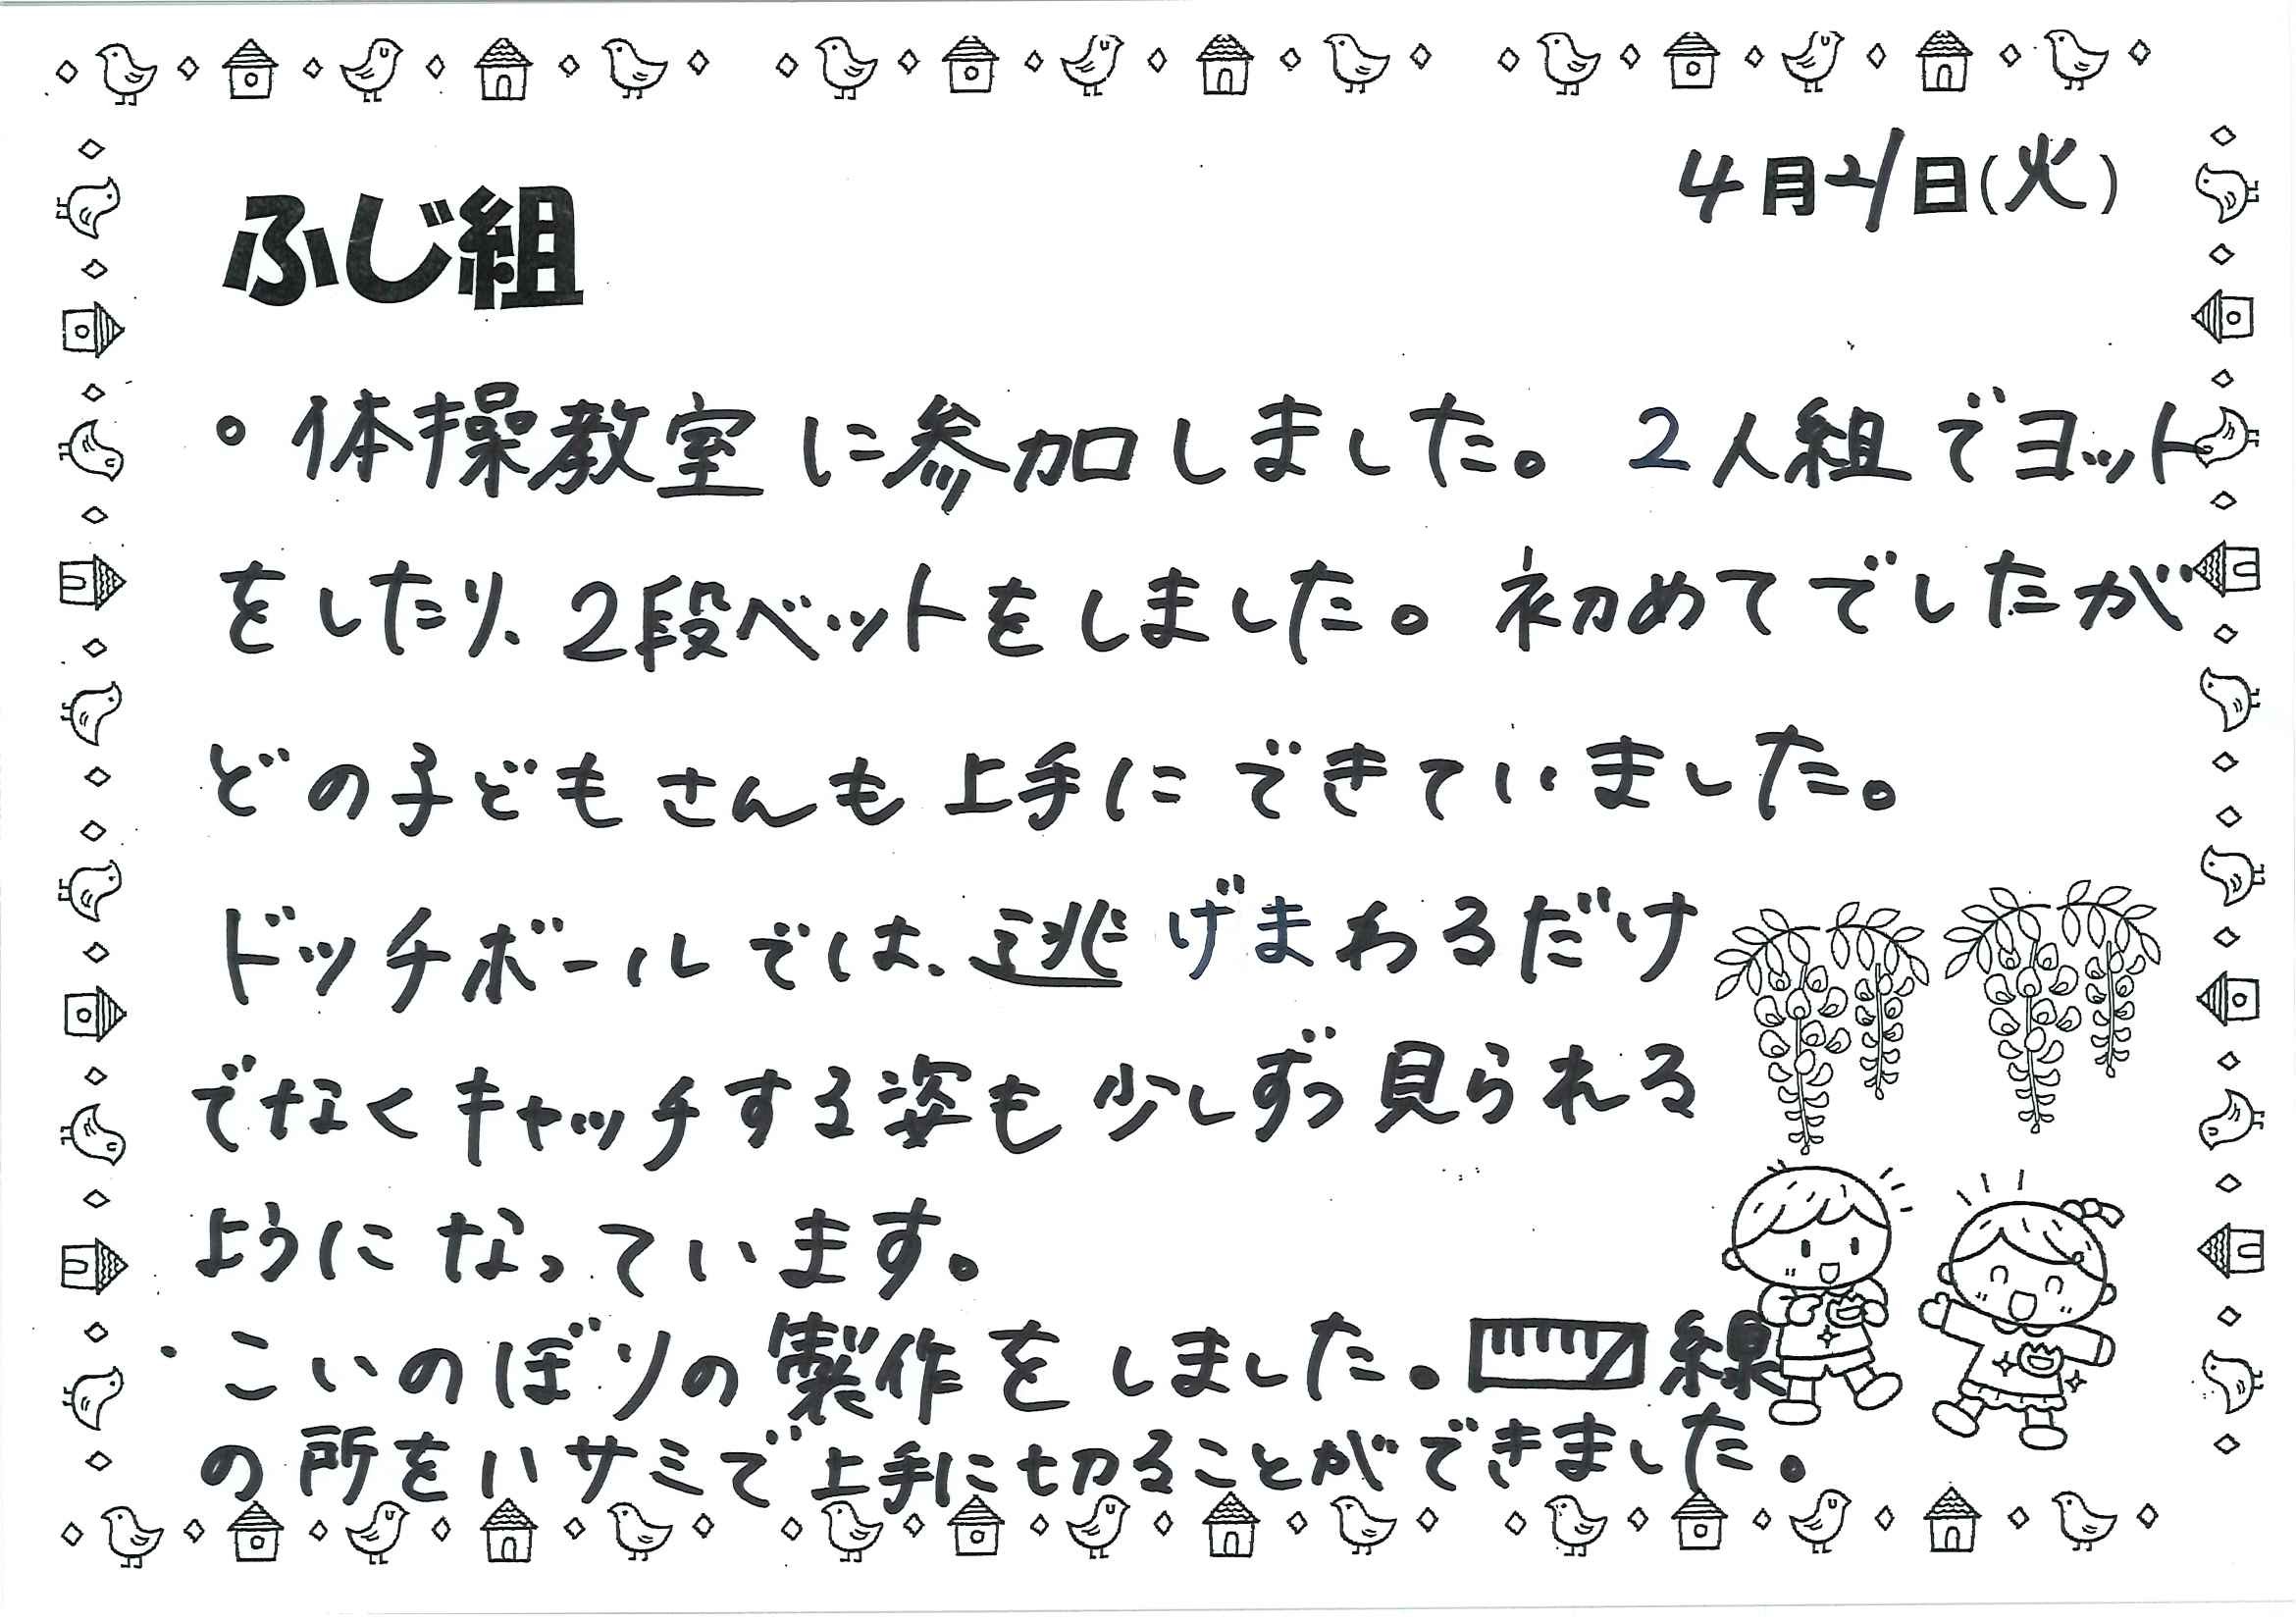 4月21日(火)
ふじ組
。体操教室に参加しました。2人組でヨット
をしたり、2段ベットをしました。初めてでしたが
どの子どもさんも上手にできていました。
ドッチボールでは、逃げまわるだけ
でなくキャッチする姿も少しずつ見られる
ようになっています。
・こいのぼりの製作をしました。線
の所をハサミで上手に切ることができました。